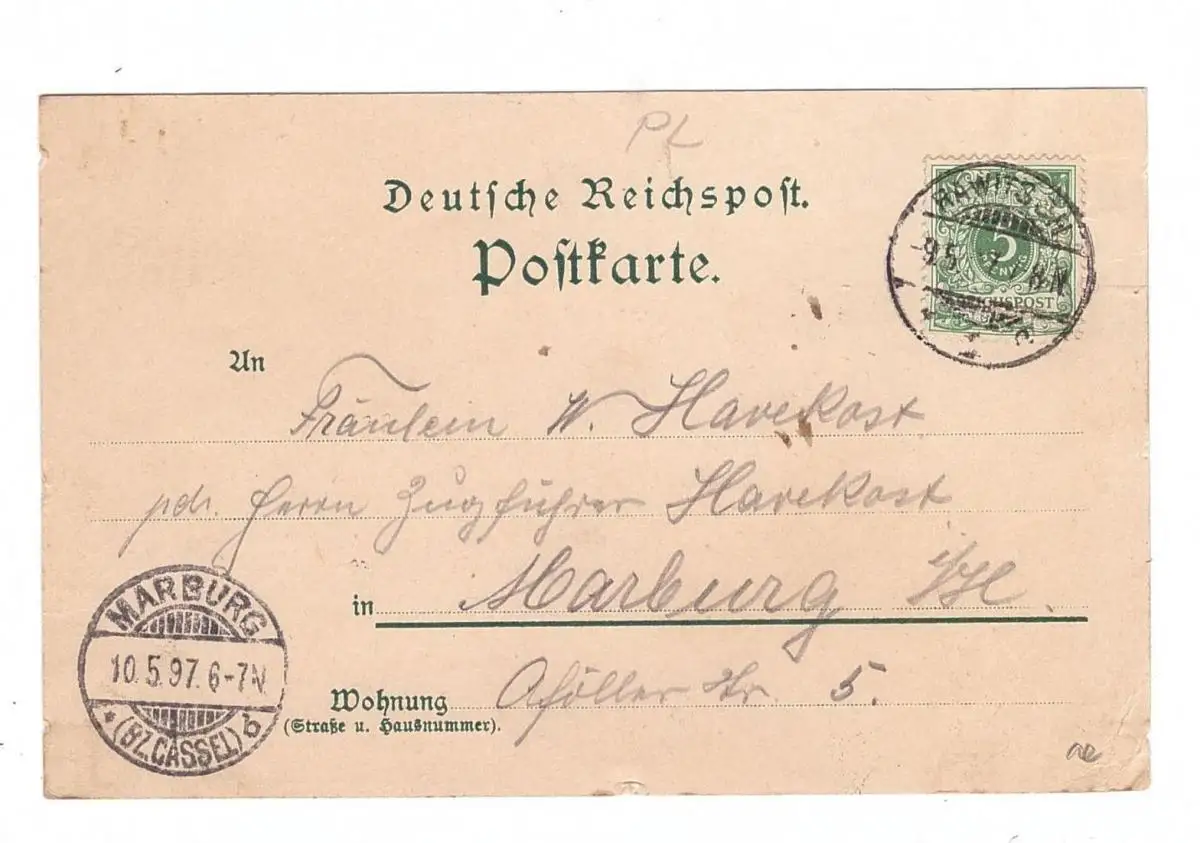 PL
Deutsche Reichspost.
Postkarte.
RAWITSCH
-9.5. 7-8N
5
REICHSPOST
An
Fräulein W. Havekost
pdr. Herrn Zugführer Havekost
in Marburg i/H.
MARBURG
10.5.97. 6-7N.
* (BZ.CASSEL) b
Wohnung Str. 5.
(Straße u. Hausnummer).